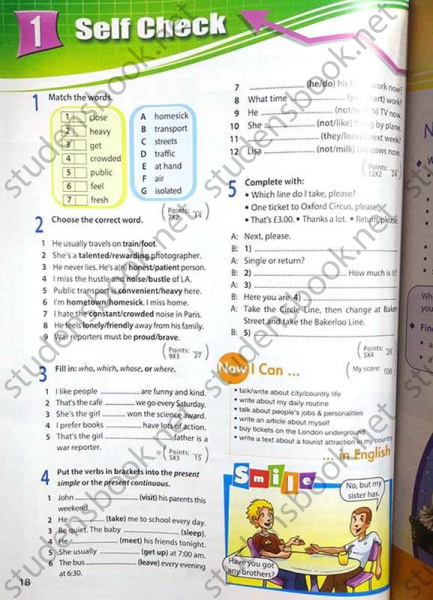 1 Self Check
1 Match the words.
1 close
2 heavy
3 get
4 crowded
5 public
6 feel
7 fresh
A homesick
B transport
C streets
D traffic
E at hand
F air
G isolated
Points: 7X2 14
2 Choose the correct word.
1 He usually travels on train/foot.
2 She's a talented/rewarding photographer.
3 He never lies. He's an honest/patient person.
4 I miss the hustle and noise/bustle of LA.
5 Public transport is convenient/heavy here.
6 I'm hometown/homesick. I miss home.
7 I hate the constant/crowded noise in Paris.
8 He feels lonely/friendly away from his family.
9 War reporters must be proud/brave.
Points: 9X3 27
3 Fill in: who, which, whose, or where.
1 I like people are funny and kind.
2 That's the café we go every Saturday.
3 She's the girl won the science award.
4 I prefer books have lots of action.
5 That's the girl father is a
war reporter.
Points: 5X3 15
4 Put the verbs in brackets into the present
simple or the present continuous.
1 John (visit) his parents this
weekend.
2 He (take) me to school every day.
3 Be quiet. The baby (sleep).
4 He (meet) his friends tonight.
5 She usually (get up) at 7:00 am.
6 The bus (leave) every evening
at 6:30.
18
7 (he/do) his work now?
8 What time work?
9 He TV now.
10 She by plane.
11 (they/leave) next week?
12 Lisa (not/milk) the cows now.
Points: 12X2 24
5 Complete with:
• Which line do I take, please?
• One ticket to Oxford Circus, please.
• That's £3.00. • Thanks a lot. • Return, please.
A: Next, please.
B: 1)
A: Single or return?
B: 2) How much is it?
A: 3)
B: Here you are. 4)
A: Take the Circle Line, then change at Baker
Street and take the Bakerloo Line.
B: 5)
Points: 5X4 20
My score: 100
Now I Can ...
• talk/write about city/country life
• write about my daily routine
• talk about people's jobs & personalities
• write an article about myself
• buy tickets on the London underground
• write a text about a tourist attraction in my country
... in English
Smile
No, but my
sister has.
Have you got
any brothers?
studensbook.net